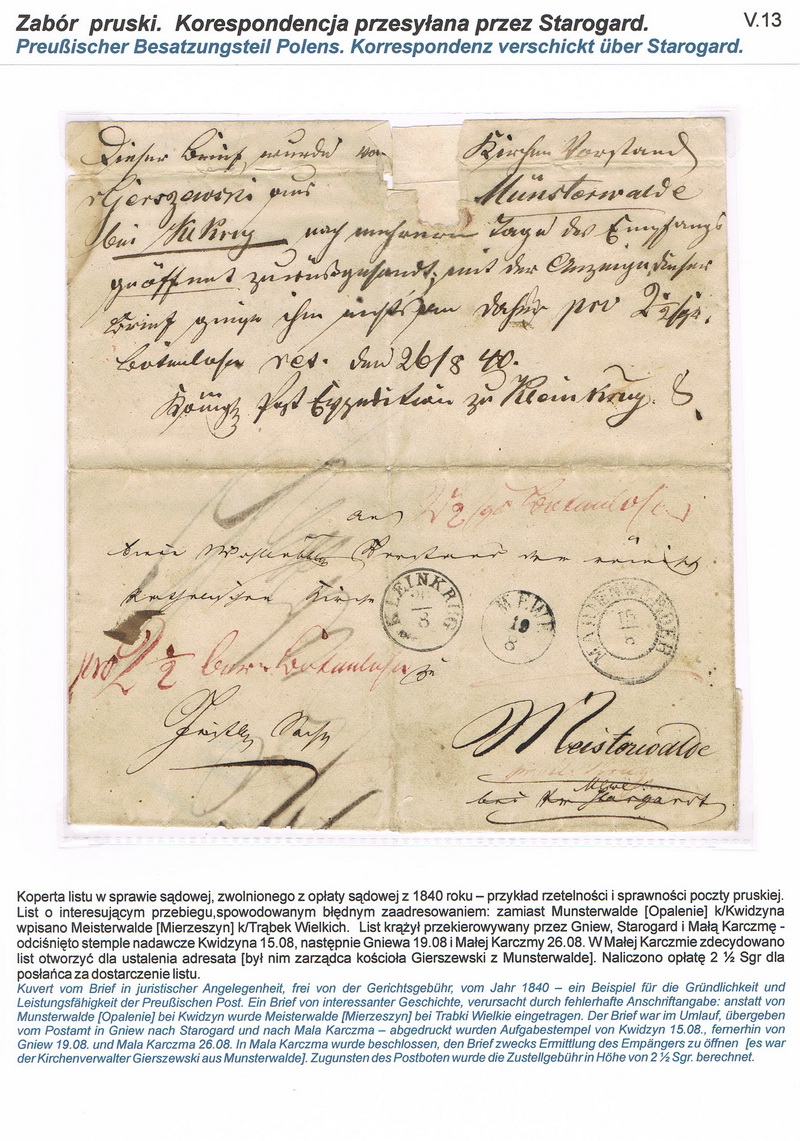 Zabór pruski. Korespondencja przesyłana przez Starogard.
V.13
Preußischer Besatzungsteil Polens. Korrespondenz verschickt über Starogard.
Dieser Brief wurde von Kirchen Vorstand
Gierszewski aus Münsterwalde
bei Kl. Krug nach mehreren Tage des Empfangs
geöffnet zurückgesandt, mit der Anzeige dieser
Brief ginge ihm nichts an daher pro 2½ sgr.
Botenlohn ret. den 26/8 40.
Königl. Post Expedition zu Kleinkrug.
an 2½ sgr Botenlohn
den der
katholischen Kirche
KLEINKRUG
26
8
MEWE
19
8
MARIENWERDER
15
8
pro 2½ Botenlohn zu
Meisterwalde
Mewe
bei Stargardt
Koperta listu w sprawie sądowej, zwolnionego z opłaty sądowej z 1840 roku – przykład rzetelności i sprawności poczty pruskiej.
List o interesującym przebiegu,spowodowanym błędnym zaadresowaniem: zamiast Munsterwalde [Opalenie] k/Kwidzyna
wpisano Meisterwalde [Mierzeszyn] k/Trąbek Wielkich. List krążył przekierowywany przez Gniew, Starogard i Małą Karczmę -
odciśnięto stemple nadawcze Kwidzyna 15.08, następnie Gniewa 19.08 i Małej Karczmy 26.08. W Małej Karczmie zdecydowano
list otworzyć dla ustalenia adresata [był nim zarządca kościoła Gierszewski z Munsterwalde]. Naliczono opłatę 2 ½ Sgr dla
posłańca za dostarczenie listu.
Kuvert vom Brief in juristischer Angelegenheit, frei von der Gerichtsgebühr, vom Jahr 1840 – ein Beispiel für die Gründlichkeit und
Leistungsfähigkeit der Preußischen Post. Ein Brief von interessanter Geschichte, verursacht durch fehlerhafte Anschriftangabe: anstatt von
Munsterwalde [Opalenie] bei Kwidzyn wurde Meisterwalde [Mierzeszyn] bei Trabki Wielkie eingetragen. Der Brief war im Umlauf, übergeben
vom Postamt in Gniew nach Starogard und nach Mala Karczma – abgedruckt wurden Aufgabestempel von Kwidzyn 15.08., fernerhin von
Gniew 19.08. und Mala Karczma 26.08. In Mala Karczma wurde beschlossen, den Brief zwecks Ermittlung des Empängers zu öffnen [es war
der Kirchenverwalter Gierszewski aus Munsterwalde]. Zugunsten des Postboten wurde die Zustellgebühr in Höhe von 2 ½ Sgr. berechnet.